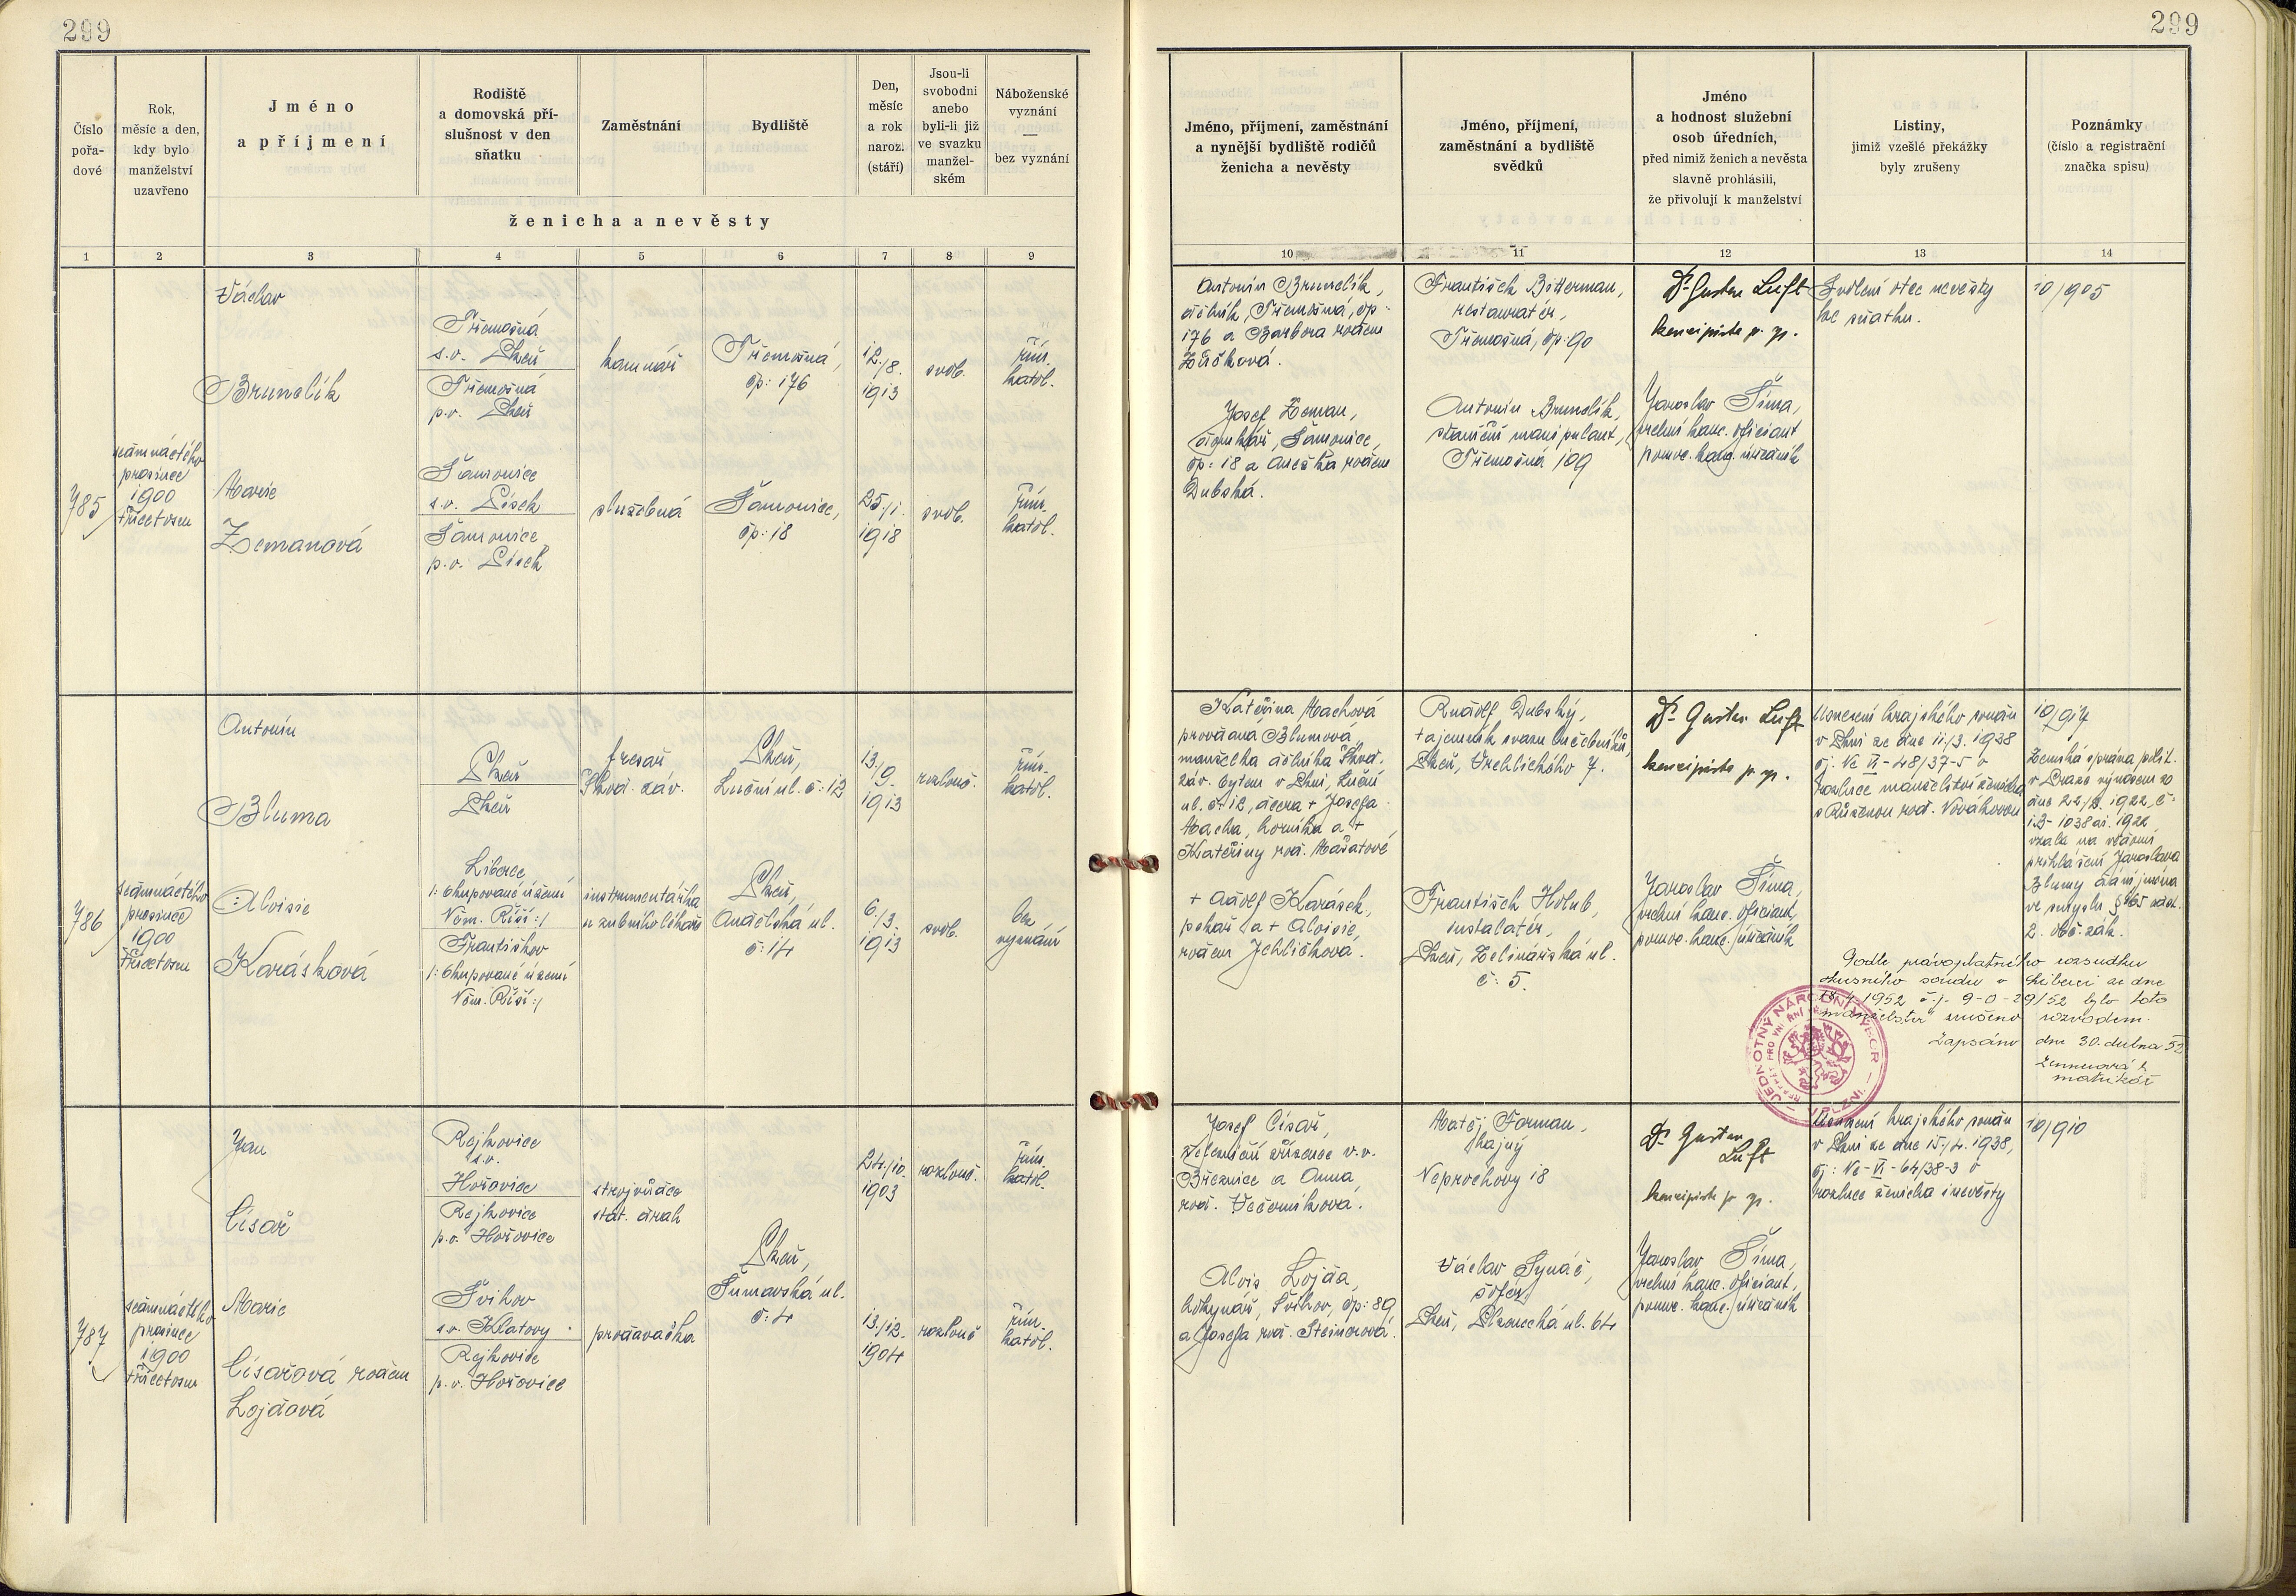 299
299
Číslo
pořa-
dové
Rok,
měsíc a den,
kdy bylo
manželství
uzavřeno
Jméno
a příjmení
Rodiště
a domovská pří-
slušnost v den
sňatku
Zaměstnání
Bydliště
Den,
měsíc
a rok
naroz.
(stáří)
Jsou-li
svobodni
anebo
byli-li již
ve svazku
manžel-
ském
Náboženské
vyznání
—
bez vyznání
ženicha a nevěsty
1 2 3 4 5 6 7 8 9
Jméno, příjmení, zaměstnání
a nynější bydliště rodičů
ženicha a nevěsty
Jméno, příjmení,
zaměstnání a bydliště
svědků
Jméno
a hodnost služební
osob úředních,
před nimiž ženich a nevěsta
slavně prohlásili,
že přivolují k manželství
Listiny,
jimiž vzešlé překážky
byly zrušeny
Poznámky
(číslo a registrační
značka spisu)
10 11 12 13 14
785
sedmnáctého
prosince
1900
třicetosm
Václav
Brunclík
Třemošná
s.o. Plzeň
Třemošná
p.o. Plzeň
kamnář
Třemošná,
čp: 176
12./8.
1913
svob.
řím.
katol.
Marie
Zemanová
Šamonice
s.o. Písek
Šamonice
p.o. Písek
služebná
Šamonice,
čp: 18
25./1.
1918
svob.
řím.
katol.
Antonín Brunclík,
dělník, Třemošná, čp:
176 a Barbora rozem
Josef Zeman,
Šamonice,
čp: 18 a Anežka rozem
Dubská.
František Bitterman,
restauratér,
Třemošná, čp: 90
Antonín Brunclík,
staniční manipulant,
Třemošná 109
Dr Gustav Luft
koncipista p. sp.
Jaroslav Šíma,
vrchní kanc. oficiant
pomoc. kanc. úředník
Svolení otce nevěsty
ke sňatku.
10/905
786
sedmnáctého
prosince
1900
třicetosm
Antonín
Bluma
Plzeň
Plzeň
fresař
Škod. záv.
Plzeň,
Luční ul. č: 12
13./
9.
1913
rozlouč.
řím.
katol.
Aloisie
Karásková
Liberec
/: okupované území
Něm. Říší :/
Františkov
/: okupované území
Něm. Říší :/
instrumentářka
u zubního lékaře
Plzeň,
Andělská ul.
č: 14
6./3.
1913
svob.
bez
vyznání
Kateřina Machová
provdaná Blumová,
manželka dělníka Škod.
záv. bytem v Plzni, Luční
ul. č: 12, dcera + Josefa
Macha, horníka a +
Kateřiny roz. Mašatové
+ Adolf Karásek,
pekař a + Aloisie,
rozem Jehličková.
Rudolf Dubský,
tajemník svazu
Plzeň, Vrchlického 7.
František Holub,
instalatér,
Plzeň, Zelinářská ul.
č: 5.
Dr Gustav Luft
koncipista p. sp.
Jaroslav Šíma,
vrchní kanc. oficiant,
pomoc. kanc. úředník
Usnesení krajského soudu
v Plzni ze dne 11./3. 1938
čj. Nc VI-48/37-5 o
rozluce manželství ženicha
s Růženou roz. Novákovou
10/917
Zemská správa polit.
v Praze výnosem ze
dne 1922, č:
1922
vzala na vědomí
přihlášení Jaroslava
Blumy dání jména
ve smyslu § 165 odst.
2. obč. zák.
Podle právoplatného rozsudku
okresního soudu v Liberci ze dne
1952 č.j. 9-0-29/52 bylo toto
manželství zrušeno rozvodem.
Zapsáno dne 30. dubna 52
matrikář
JEDNOTNÝ NÁRODNÍ VÝBOR
REFERÁT PRO VNITŘNÍ
787
sedmnáctého
prosince
1900
třicetosm
Jan
Císař
Rejkovice
s.o.
Hořovice
Rejkovice
p.o. Hořovice
strojvůdce
stát. drah
24./10.
1903
rozlouč.
řím.
katol.
Plzeň,
Šumavská ul.
č: 4
Marie
Císařová rozem
Lojdová
Švihov
s.o. Klatovy
Rejkovice
p.o. Hořovice
prodavačka
13./12.
1904
rozlouč
řím.
katol.
Josef Císař,
železniční zřízenec v.v.
Březnice a Anna,
roz. Večerníková.
Alois Lojda,
Švihov, čp: 89
a Josefa roz. Steinerová.
Matěj Forman,
hajný
Neprochovy 18
Václav Synáč,
šofér,
Plzeň, Plzenecká ul. 64
Dr Gustav
Luft
koncipista p. sp.
Jaroslav Šíma,
vrchní kanc. oficiant,
pomoc. kanc. úředník
Usnesení krajského soudu
v Plzni ze dne 15./4. 1938,
čj: Nc-VI-64/38-3 o
rozluce ženicha i nevěsty
10/910